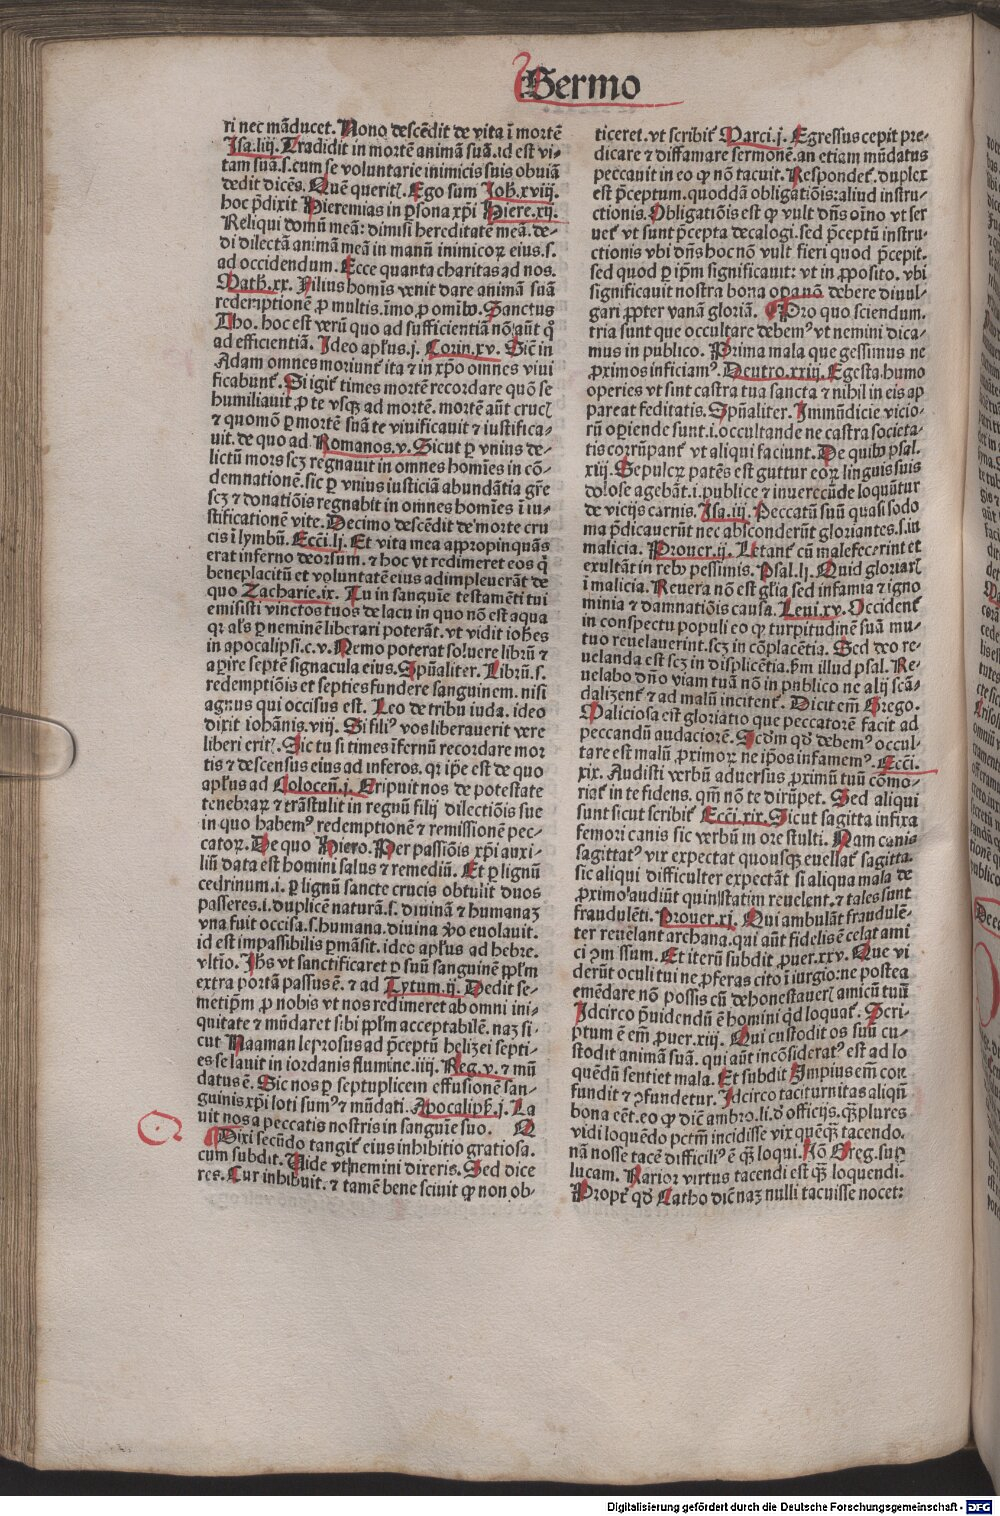 Sermo
ri nec mãducet. Nono descẽdit de vita ĩ mortẽ
Isa.liij. Tradidit in mortẽ animã suã.id est vi⸗
tam suã.s.cum se voluntarie inimicis suis obuiã
dedit dicẽs. Quẽ querit. Ego sum Joh.xviij.
hoc p̃dixit Hieremias in ꝑsona xp̃i Hiere.xij.
Reliqui domũ meã: dimisi hereditatẽ meã.de⸗
di dilectã animã meã in manũ inimicoꝝ eius.s.
ad occidendum. Ecce quanta charitas ad nos.
Math.xx. Filius homĩs venit dare animã suã
redemptionẽ ꝓ multis.imo ꝓ omĩbꝰ. Sanctus
Tho. hoc est verũ quo ad sufficientiã nõ aũt qͦ
ad efficientiã. Ideo apl̃us.j. Corin.xv. Sic̃ in
Adam omnes moriunt̃ ita ⁊ in xp̃o omnes viui
ficabunt̃. Si igit̃ times mortẽ recordare quõ se
humiliauit ꝓ te vsqꝫ ad mortẽ. mortẽ aũt cruc̃
⁊ quomõ ꝑ mortẽ suã te viuificauit ⁊ iustifica⸗
uit. de quo ad Romanos.v. Sicut ꝑ vnius de⸗
lictũ mors scꝫ regnauit in omnes homĩes in cõ⸗
demnationẽ.sic ꝑ vnius iusticiã abundãtia gr̃e
scꝫ ⁊ donatiõis regnabit in omnes homĩes ĩ iu⸗
stificationẽ vite. Decimo descẽdit de morte cru
cis ĩ lymbũ. Ecci.lj. Et vita mea appropinquãs
erat inferno deorsum. ⁊ hoc vt redimeret eos q̃
beneplacitũ et voluntatẽ eius adimpleuerãt de
quo Zacharie.ix. Tu in sanguĩe testamẽti tui
emisisti vinctos tuos de lacu in quo nõ est aqua
qꝛ al̃s ꝑ neminẽ liberari poterãt. vt vidit ioh̃es
in apocalipsi.c.v. Nemo poterat soluere librũ ⁊
aꝑire septẽ signacula eius. Spũaliter. Librũ.s.
redemptiõis et septies fundere sanguinem. nisi
agnus qui occisus est. Leo de tribu iuda. ideo
dixit iohãnis.viij. Si filiꝰ vos liberauerit vere
liberi erit̃. Sic tu si times ĩfernũ recordare mor
tis ⁊ descensus eius ad inferos. qꝛ ip̃e est de quo
apl̃us ad Colocen̄.j. Eripuit nos de potestate
tenebraꝝ ⁊ trãstulit in regnũ filij dilectiõis sue
in quo habemꝰ redemptionẽ ⁊ remissionẽ pec⸗
catoꝝ. De quo Hiero. Per passiõis xp̃i auxi⸗
liũ data est homini salus ⁊ remediũ. Et ꝑ lignũ
cedrinum.i. ꝑ lignũ sancte crucis obtulit duos
passeres.i. duplicẽ naturã.s. diuinã ⁊ humanaꝫ
vna fuit occisa.s.humana.diuina ꝟo euolauit.
id est impassibilis ꝑmãsit. ideo apl̃us ad hebre.
vltio. Jh̃s vt sanctificaret ꝑ suũ sanguinẽ pplm̃
extra portã passus ẽ. ⁊ ad Tytum.ij. Dedit se⸗
metip̃m ꝓ nobis vt nos redimeret ab omni ini⸗
quitate ⁊ mũdaret sibi pplm̃ acceptabilẽ. naꝫ si⸗
cut Naaman leprosus ad p̃ceptũ helizei septi⸗
es se lauit in iordanis flumine.iiij. Reg.v. ⁊ mũ
datus ẽ. Sic nos ꝑ septuplicem effusionẽ san⸗
guinis xp̃i loti sumꝰ ⁊ mũdati. Apocalip̃.j. La
uit nos a peccatis nostris in sanguĩe suo.
Dixi secũdo tangit̃ eius inhibitio gratiosa.
cum subdit. Vide vt nemini dixeris. Sed dice
res. Cur inhibuit. ⁊ tamẽ bene sciuit ꝙ non ob⸗
ticeret. vt scribit̃ Marci.j. Egressus cepit pre⸗
dicare ⁊ diffamare sermonẽ.an etiam mũdatus
peccauit in eo ꝙ nõ tacuit. Respondet̃. duplex
est p̃ceptum. quoddã obligatiõis: aliud instru⸗
ctionis. Obligatiõis est ꝙ vult dñs oĩno vt ser
uet̃ vt sunt p̃cepta decalogi. sed p̃ceptũ instru⸗
ctionis vbi dñs hoc nõ vult fieri quod p̃cepit.
sed quod ꝑ ip̃m significauit: vt in ꝓposito. vbi
significauit nostra bona oꝑa nõ debere diuul⸗
gari ꝓpter vanã gloriã. Pro quo sciendum.
tria sunt que occultare debemꝰ vt nemini dica⸗
mus in publico. Prima mala que gessimus ne
ꝓximos inficiamꝰ. Deutro.xxiij. Egesta humo
operies vt sint castra tua sancta ⁊ nihil in eis ap
pareat feditatis. Spũaliter. Immũdicie vicio⸗
rũ oꝑiende sunt.i.occultande ne castra societa⸗
tis corrũpant̃ vt aliqui faciunt. De quibꝰ psal.
xiij. Sepulcrꝝ patẽs est guttur eoꝝ linguis suis
dolose agebãt.i.publice ⁊ inuerecũde loquũtur
de vicijs carnis. Isa.iij. Peccatũ suũ quasi sodo
ma p̃dicauerũt nec absconderũt gloriantes.s.in
malicia. Prouer.ij. Letant̃ cũ malefecerint et
exultãt in rebꝰ pessimis. Psal.lj. Quid gloriar̃
ĩ malicia. Reuera nõ est gl̃ia sed infamia ⁊ igno
minia ⁊ damnatiõis causa. Leui.xx. Occident̃
in conspectu populi eo ꝙ turpitudinẽ suã mu⸗
tuo reuelauerint.scꝫ in cõplacẽtia. Sed deo re⸗
uelanda est scꝫ in displicẽtia.ẜm illud psal. Re⸗
uelabo dño viam tuã nõ in publico ne alij scã⸗
dalizent̃ ⁊ ad malũ incitent̃. Dicit em̃ Grego.
Maliciosa est gloriatio que peccatorẽ facit ad
peccandũ audaciorẽ. Scd̃m qd̃ debemꝰ occul⸗
tare est malũ ꝓximoꝝ ne ip̃os infamemꝰ. Ecci.
xix. Audisti verbũ aduersus ꝓximũ tuũ cõmo⸗
riat̃ in te fidens. qm̃ nõ te dirũpet. Sed aliqui
sunt sicut scribit̃ Ecci.xix. Sicut sagitta infixa
femori canis sic verbũ in ore stulti. Nam canis
sagittatꝰ vix expectat quousqꝫ euellat̃ sagitta.
sic aliqui difficulter expectãt si aliqua mala de
ꝓximo audiũt quin statim reuelent. ⁊ tales sunt
fraudulẽti. Prouer.xj. Qui ambulãt fraudulẽ⸗
ter reuelant archana.qui aũt fidelis ẽ celat ami
ci ꝯmissum. Et iterũ subdit ꝓuer.xxv. Que vi
derũt oculi tui ne ꝓferas cito ĩ iurgio:ne postea
emẽdare nõ possis cũ dehonestauer̃ amicũ tuũ
Idcirco p̃uidendũ ẽ homini qd̃ loquat̃. Scri⸗
ptum ẽ em̃ ꝓuer.xiij. Qui custodit os suũ cu⸗
stodit animã suã. qui aũt incõsideratꝰ est ad lo
quẽdũ sentiet mala. Et subdit Impius em̃ con
fundit ⁊ ꝯfundetur. Idcirco taciturnitas aliqñ
bona cẽt.eo ꝙ dic̃ ambro.li.d̃ officijs.qꝫ plures
vidi loquẽdo pctm̃ incidisse vix quẽqꝫ tacendo.
nã nosse tacẽ difficiliꝰ ẽ qꝫ loqui. Jõ Greg.suꝑ
lucam. Rarior virtus tacendi est qꝫ loquendi.
Propt̃ qd̃ Catho dic̃ naꝫ nulli tacuisse nocet:
Digitalisierung gefördert durch die Deutsche Forschungsgemeinschaft - DFG